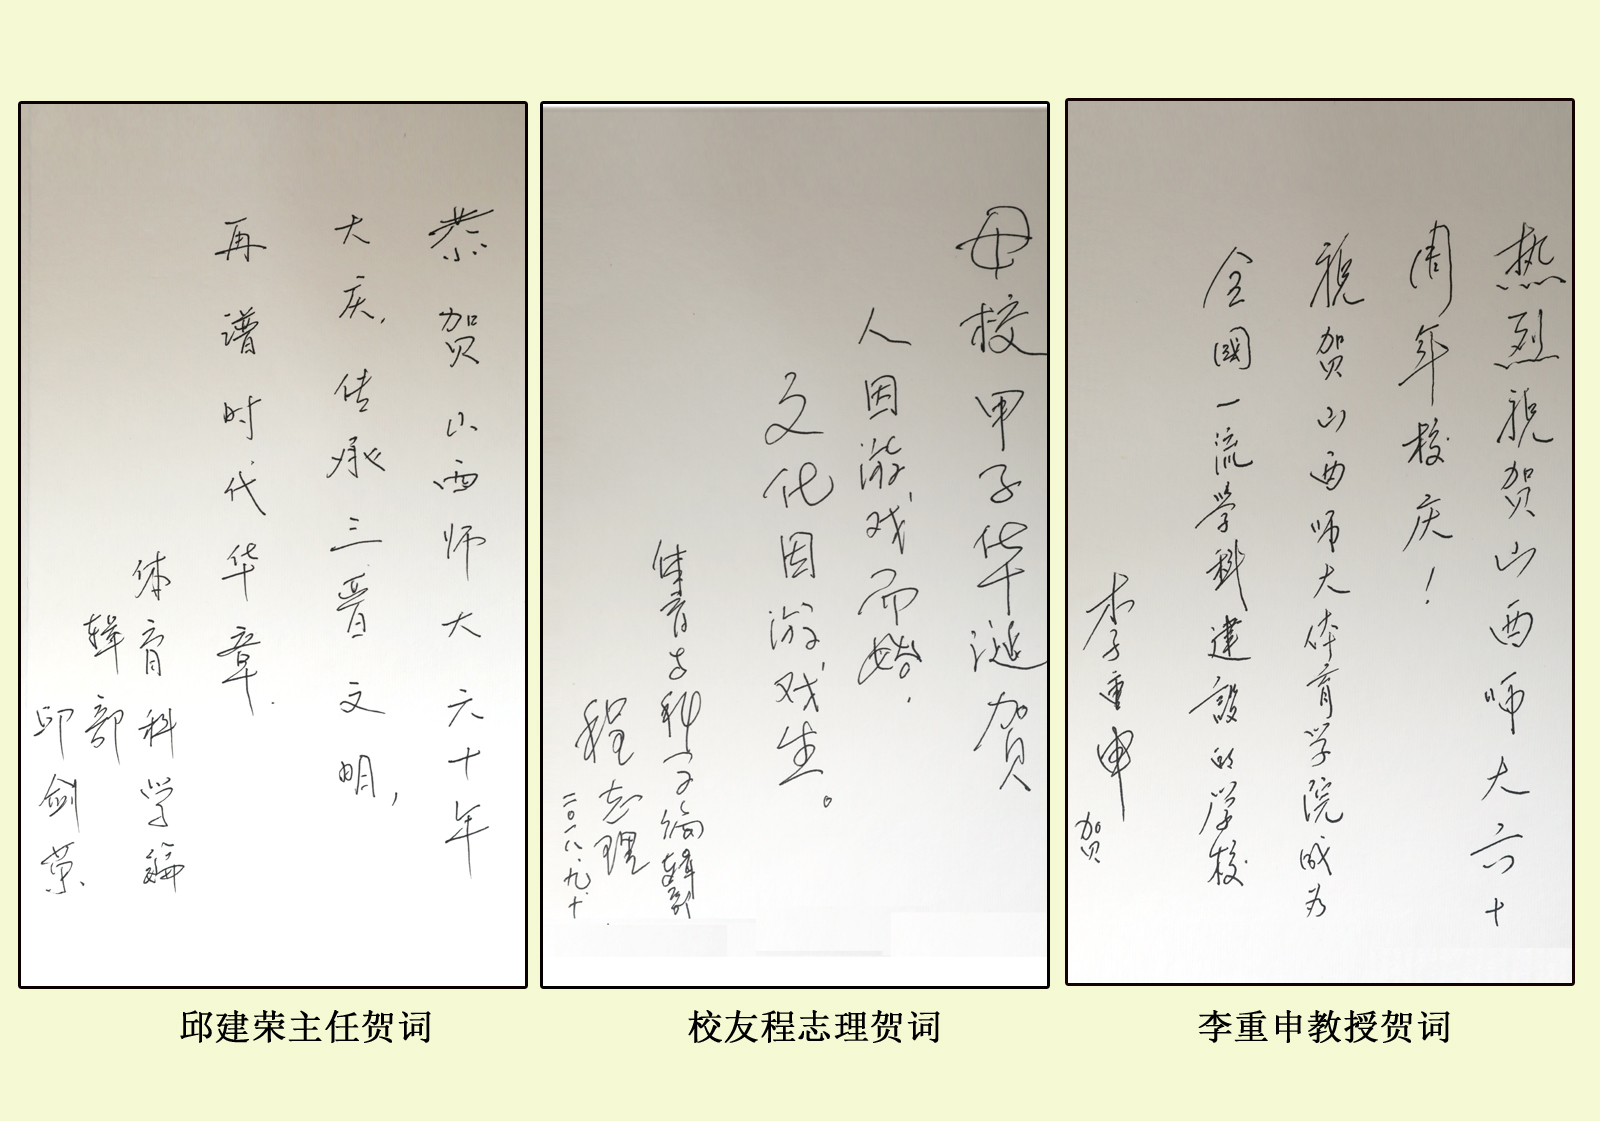 恭贺山西师大六十年
大庆,传承三晋文明,
再谱时代华章.
体育科学编
辑部
邱剑荣
邱建荣主任贺词
母校甲子华诞贺
人因游戏而始,
文化因游戏生。
体育与科学编辑部
程志理
二〇一八.九.十
校友程志理贺词
热烈祝贺山西师大六十
周年校庆!
祝贺山西师大体育学院成为
全國一流學科建設的学校
李重申
贺
李重申教授贺词